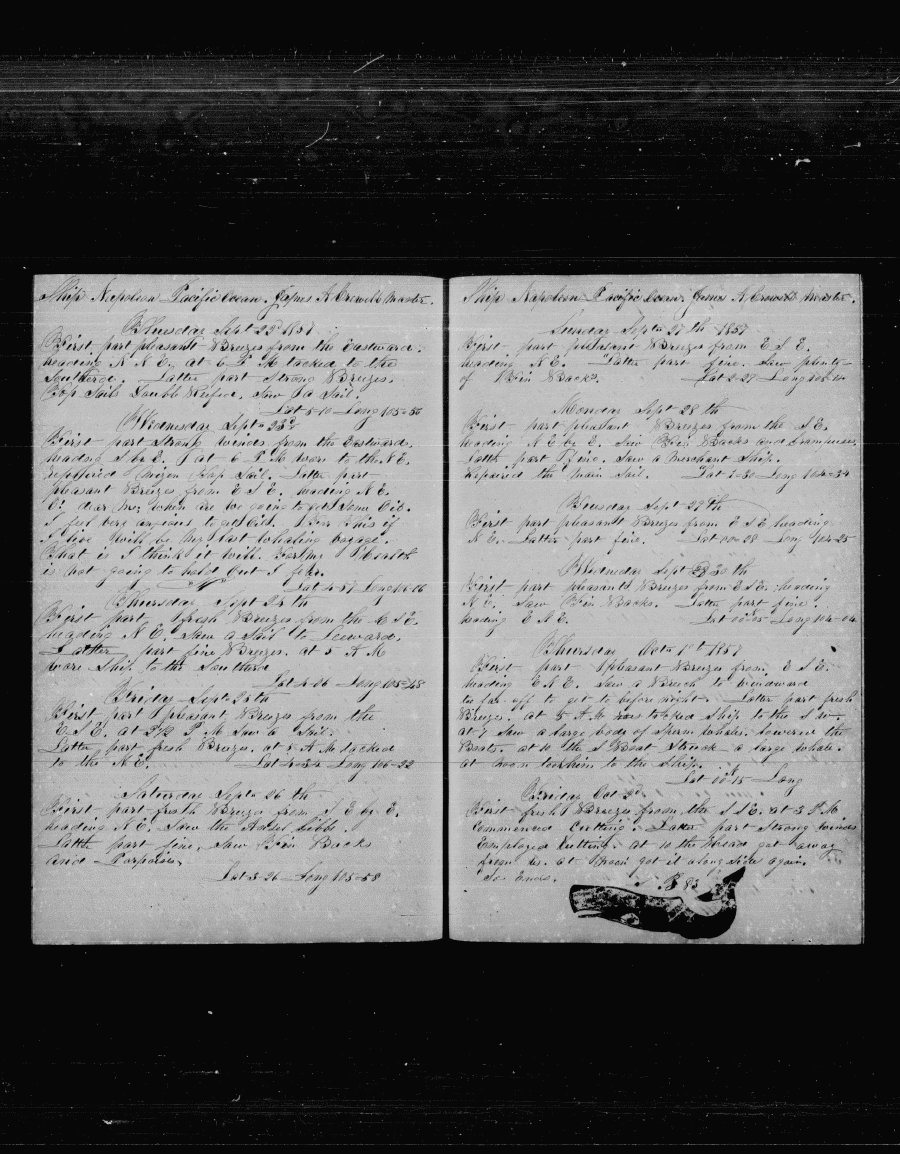 Ship Napoleon Pacific Ocean. James A Crowell Master.
Tuesday Sept 22d 1857
First part pleasant Breezes from the Eastward.
heading N N E. at 6 P M tacked to the
Southard. Latter part Strong Breezes.
Top Sails Double Reefed. Saw a Sail.
Lat 5-10 Long 105-50
Wednesday Sept 23d
First part Strong winds from the Eastward.
heading S by E. at 6 P M wore to the N E.
repaired Mizen Top Sail. Latter part
pleasant Breezes from E S E. heading N E.
O, dear me, when are we going to get Some Oil.
I feel very anxious to get Oil. For this if
I live will be my last whaling voyage.
That is I think it will. For my Health
is not going to hold out I fear.
Lat 4-57 Long 106-06
Thursday Sept 24th
First part fresh Breezes from the E S E.
heading N E. Saw a Sail to Leeward.
Latter part fine Breezes. at 5 A M
wore Ship to the Southard
Lat 4-06 Long 105-48
Friday Sept 25th
First part pleasant Breezes from the
E S E. at P M Saw a Sail.
Latter part fresh Breezes. at 5 A M tacked
to the N E. Lat 4-34 Long 106-22
Saturday Sept 26th
First part fresh Breezes from S E by E.
heading N E. Saw the Ansel Gibbs.
Latter part fine, Saw Fin Backs
and Porpoises,
Lat 3-26 Long 105-58
Ship Napoleon Pacific Ocean. James A Crowell Master.
Sunday Sept 27th 1857
First part pleasant Breezes from E S E.
heading N E. Latter part fine. Saw plenty
of Fin Backs. Lat 2-27 Long 105-10
Monday Sept 28th
First part pleasant Breezes from the S E.
heading N E by E. Saw Fin Backs and Grampuses.
Latter part Fine. Saw a Merchant Ship.
Repaired the Main Sail. Lat 1-30 Long 104-34
Tuesday Sept 29th
First part pleasant Breezes from E S E heading
N E. Latter part fine. Lat 00-28 Long 104-25
Wednesday Sept 30th
First part pleasant Breezes from E S E. heading
N E. Saw Fin Backs. Latter part fine.
heading E N E. Lat 00-05 Long 104-04
Thursday Oct 1st 1857
First part pleasant Breezes from E S E.
heading E N E. Saw a Breach to windward
too far off to get to before night. Latter part fresh
Breezes. at 5 A M tacked Ship to the S W.
at 7 Saw a large body of Sperm whales. Lowered the
Boats. at 10 the S Boat Struck a large whale.
at noon took him to the Ship.
Lat 00-15 Long
Friday Oct 2d
First fresh Breezes from the S S E. at 3 P M
Commenced Cutting. Latter part Strong winds
Employed Cutting. at 10 the head got away
from us. at Noon got it along Side again.
So Ends. B 85